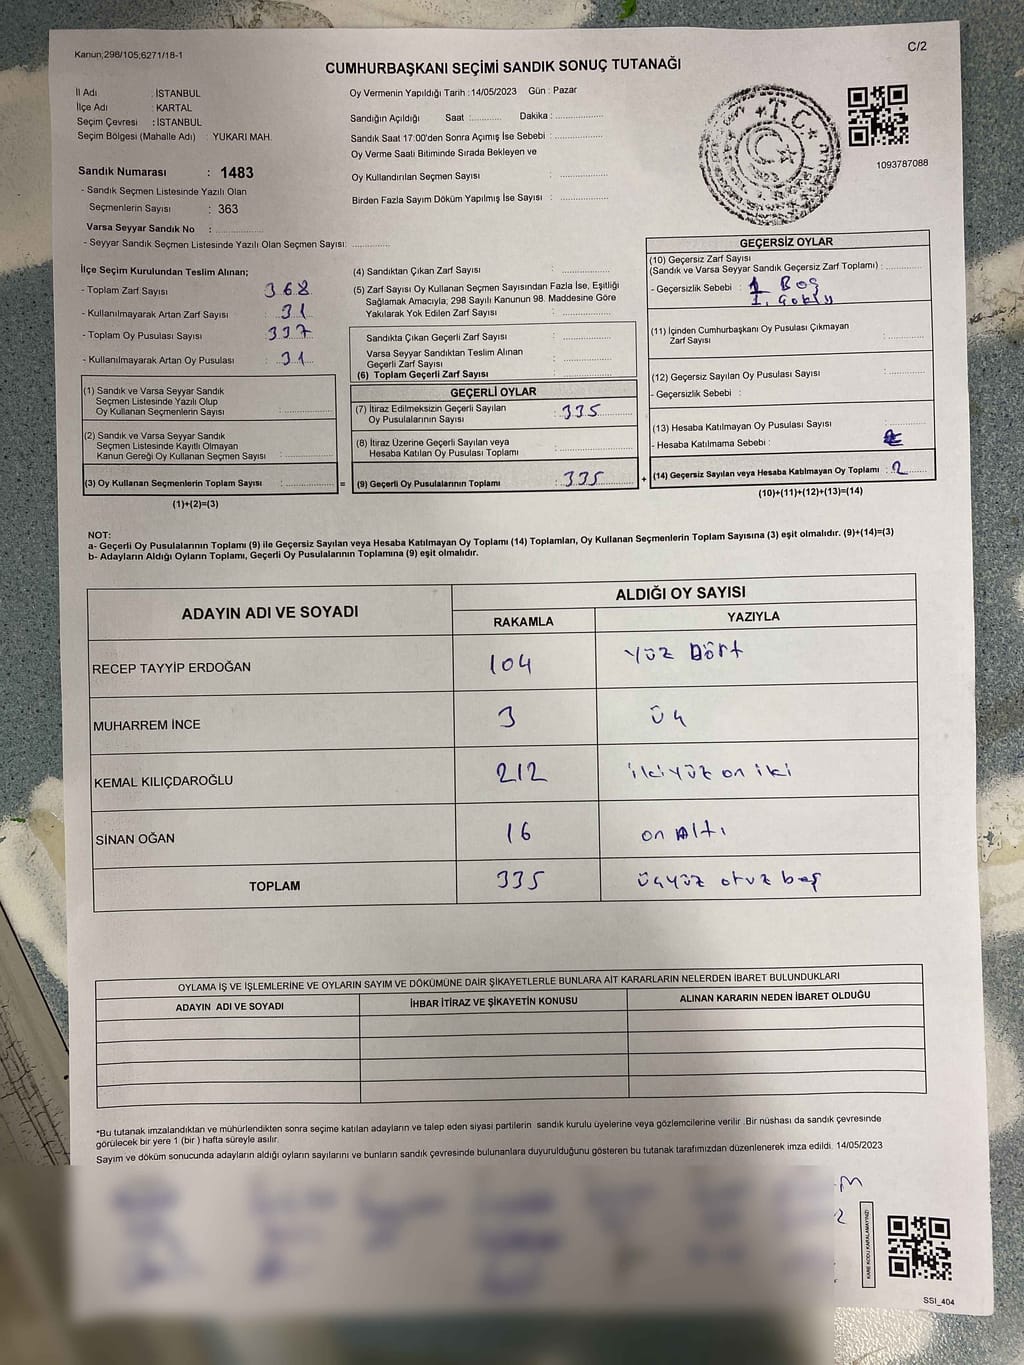 Kanun;298/105;6271/18-1
C/2
CUMHURBAŞKANI SEÇİMİ SANDIK SONUÇ TUTANAĞI
İl Adı : İSTANBUL
İlçe Adı : KARTAL
Seçim Çevresi : İSTANBUL
Seçim Bölgesi (Mahalle Adı) : YUKARI MAH.
Sandık Numarası : 1483
- Sandık Seçmen Listesinde Yazılı Olan
Seçmenlerin Sayısı : 363
Varsa Seyyar Sandık No :
- Seyyar Sandık Seçmen Listesinde Yazılı Olan Seçmen Sayısı:
Oy Vermenin Yapıldığı Tarih : 14/05/2023 Gün : Pazar
Sandığın Açıldığı Saat : Dakika :
Sandık Saat 17:00'den Sonra Açımış İse Sebebi :
Oy Verme Saati Bitiminde Sırada Bekleyen ve
Oy Kullandırılan Seçmen Sayısı :
Birden Fazla Sayım Döküm Yapılmış İse Sayısı :
T.C.
1093787088
İlçe Seçim Kurulundan Teslim Alınan;
- Toplam Zarf Sayısı : 368
- Kullanılmayarak Artan Zarf Sayısı : 31
- Toplam Oy Pusulası Sayısı : 337
- Kullanılmayarak Artan Oy Pusulası : 31
(1) Sandık ve Varsa Seyyar Sandık
Seçmen Listesinde Yazılı Olup
Oy Kullanan Seçmenlerin Sayısı :
(2) Sandık ve Varsa Seyyar Sandık
Seçmen Listesinde Kayıtlı Olmayan
Kanun Gereği Oy Kullanan Seçmen Sayısı :
(3) Oy Kullanan Seçmenlerin Toplam Sayısı :
(1)+(2)=(3)
(4) Sandıktan Çıkan Zarf Sayısı :
(5) Zarf Sayısı Oy Kullanan Seçmen Sayısından Fazla İse, Eşitliği
Sağlamak Amacıyla; 298 Sayılı Kanunun 98. Maddesine Göre
Yakılarak Yok Edilen Zarf Sayısı :
Sandıkta Çıkan Geçerli Zarf Sayısı :
Varsa Seyyar Sandıktan Teslim Alınan
Geçerli Zarf Sayısı :
(6) Toplam Geçerli Zarf Sayısı :
GEÇERLİ OYLAR
(7) İtiraz Edilmeksizin Geçerli Sayılan
Oy Pusulalarının Sayısı : 335
(8) İtiraz Üzerine Geçerli Sayılan veya
Hesaba Katılan Oy Pusulası Toplamı :
= (9) Geçerli Oy Pusulalarının Toplamı : 335 +
GEÇERSİZ OYLAR
(10) Geçersiz Zarf Sayısı
(Sandık ve Varsa Seyyar Sandık Geçersiz Zarf Toplamı) :
- Geçersizlik Sebebi : 1 Boş
1.
(11) İçinden Cumhurbaşkanı Oy Pusulası Çıkmayan
Zarf Sayısı :
(12) Geçersiz Sayılan Oy Pusulası Sayısı :
- Geçersizlik Sebebi :
(13) Hesaba Katılmayan Oy Pusulası Sayısı :
- Hesaba Katılmama Sebebi :
(14) Geçersiz Sayılan veya Hesaba Katılmayan Oy Toplamı : 2
(10)+(11)+(12)+(13)=(14)
NOT:
a- Geçerli Oy Pusulalarının Toplamı (9) ile Geçersiz Sayılan veya Hesaba Katılmayan Oy Toplamı (14) Toplamları, Oy Kullanan Seçmenlerin Toplam Sayısına (3) eşit olmalıdır. (9)+(14)=(3)
b- Adayların Aldığı Oyların Toplamı, Geçerli Oy Pusulalarının Toplamına (9) eşit olmalıdır.
ADAYIN ADI VE SOYADI
ALDIĞI OY SAYISI
RAKAMLA YAZIYLA
RECEP TAYYİP ERDOĞAN 104 Yüz Dört
MUHARREM İNCE 3 üç
KEMAL KILIÇDAROĞLU 212 ikiyüz on iki
SİNAN OĞAN 16 on Altı
TOPLAM 335 üçyüz otuz beş
OYLAMA İŞ VE İŞLEMLERİNE VE OYLARIN SAYIM VE DÖKÜMÜNE DAİR ŞİKAYETLERLE BUNLARA AİT KARARLARIN NELERDEN İBARET BULUNDUKLARI
ADAYIN ADI VE SOYADI İHBAR İTİRAZ VE ŞİKAYETİN KONUSU ALINAN KARARIN NEDEN İBARET OLDUĞU
*Bu tutanak imzalandıktan ve mühürlendikten sonra seçime katılan adayların ve talep eden siyasi partilerin sandık kurulu üyelerine veya gözlemcilerine verilir .Bir nüshası da sandık çevresinde
görülecek bir yere 1 (bir ) hafta süreyle asılır.
Sayım ve döküm sonucunda adayların aldığı oyların sayılarını ve bunların sandık çevresinde bulunanlara duyurulduğunu gösteren bu tutanak tarafımızdan düzenlenerek imza edildi. 14/05/2023
KARE KODU KARALAMAYINIZ!
SSI_404